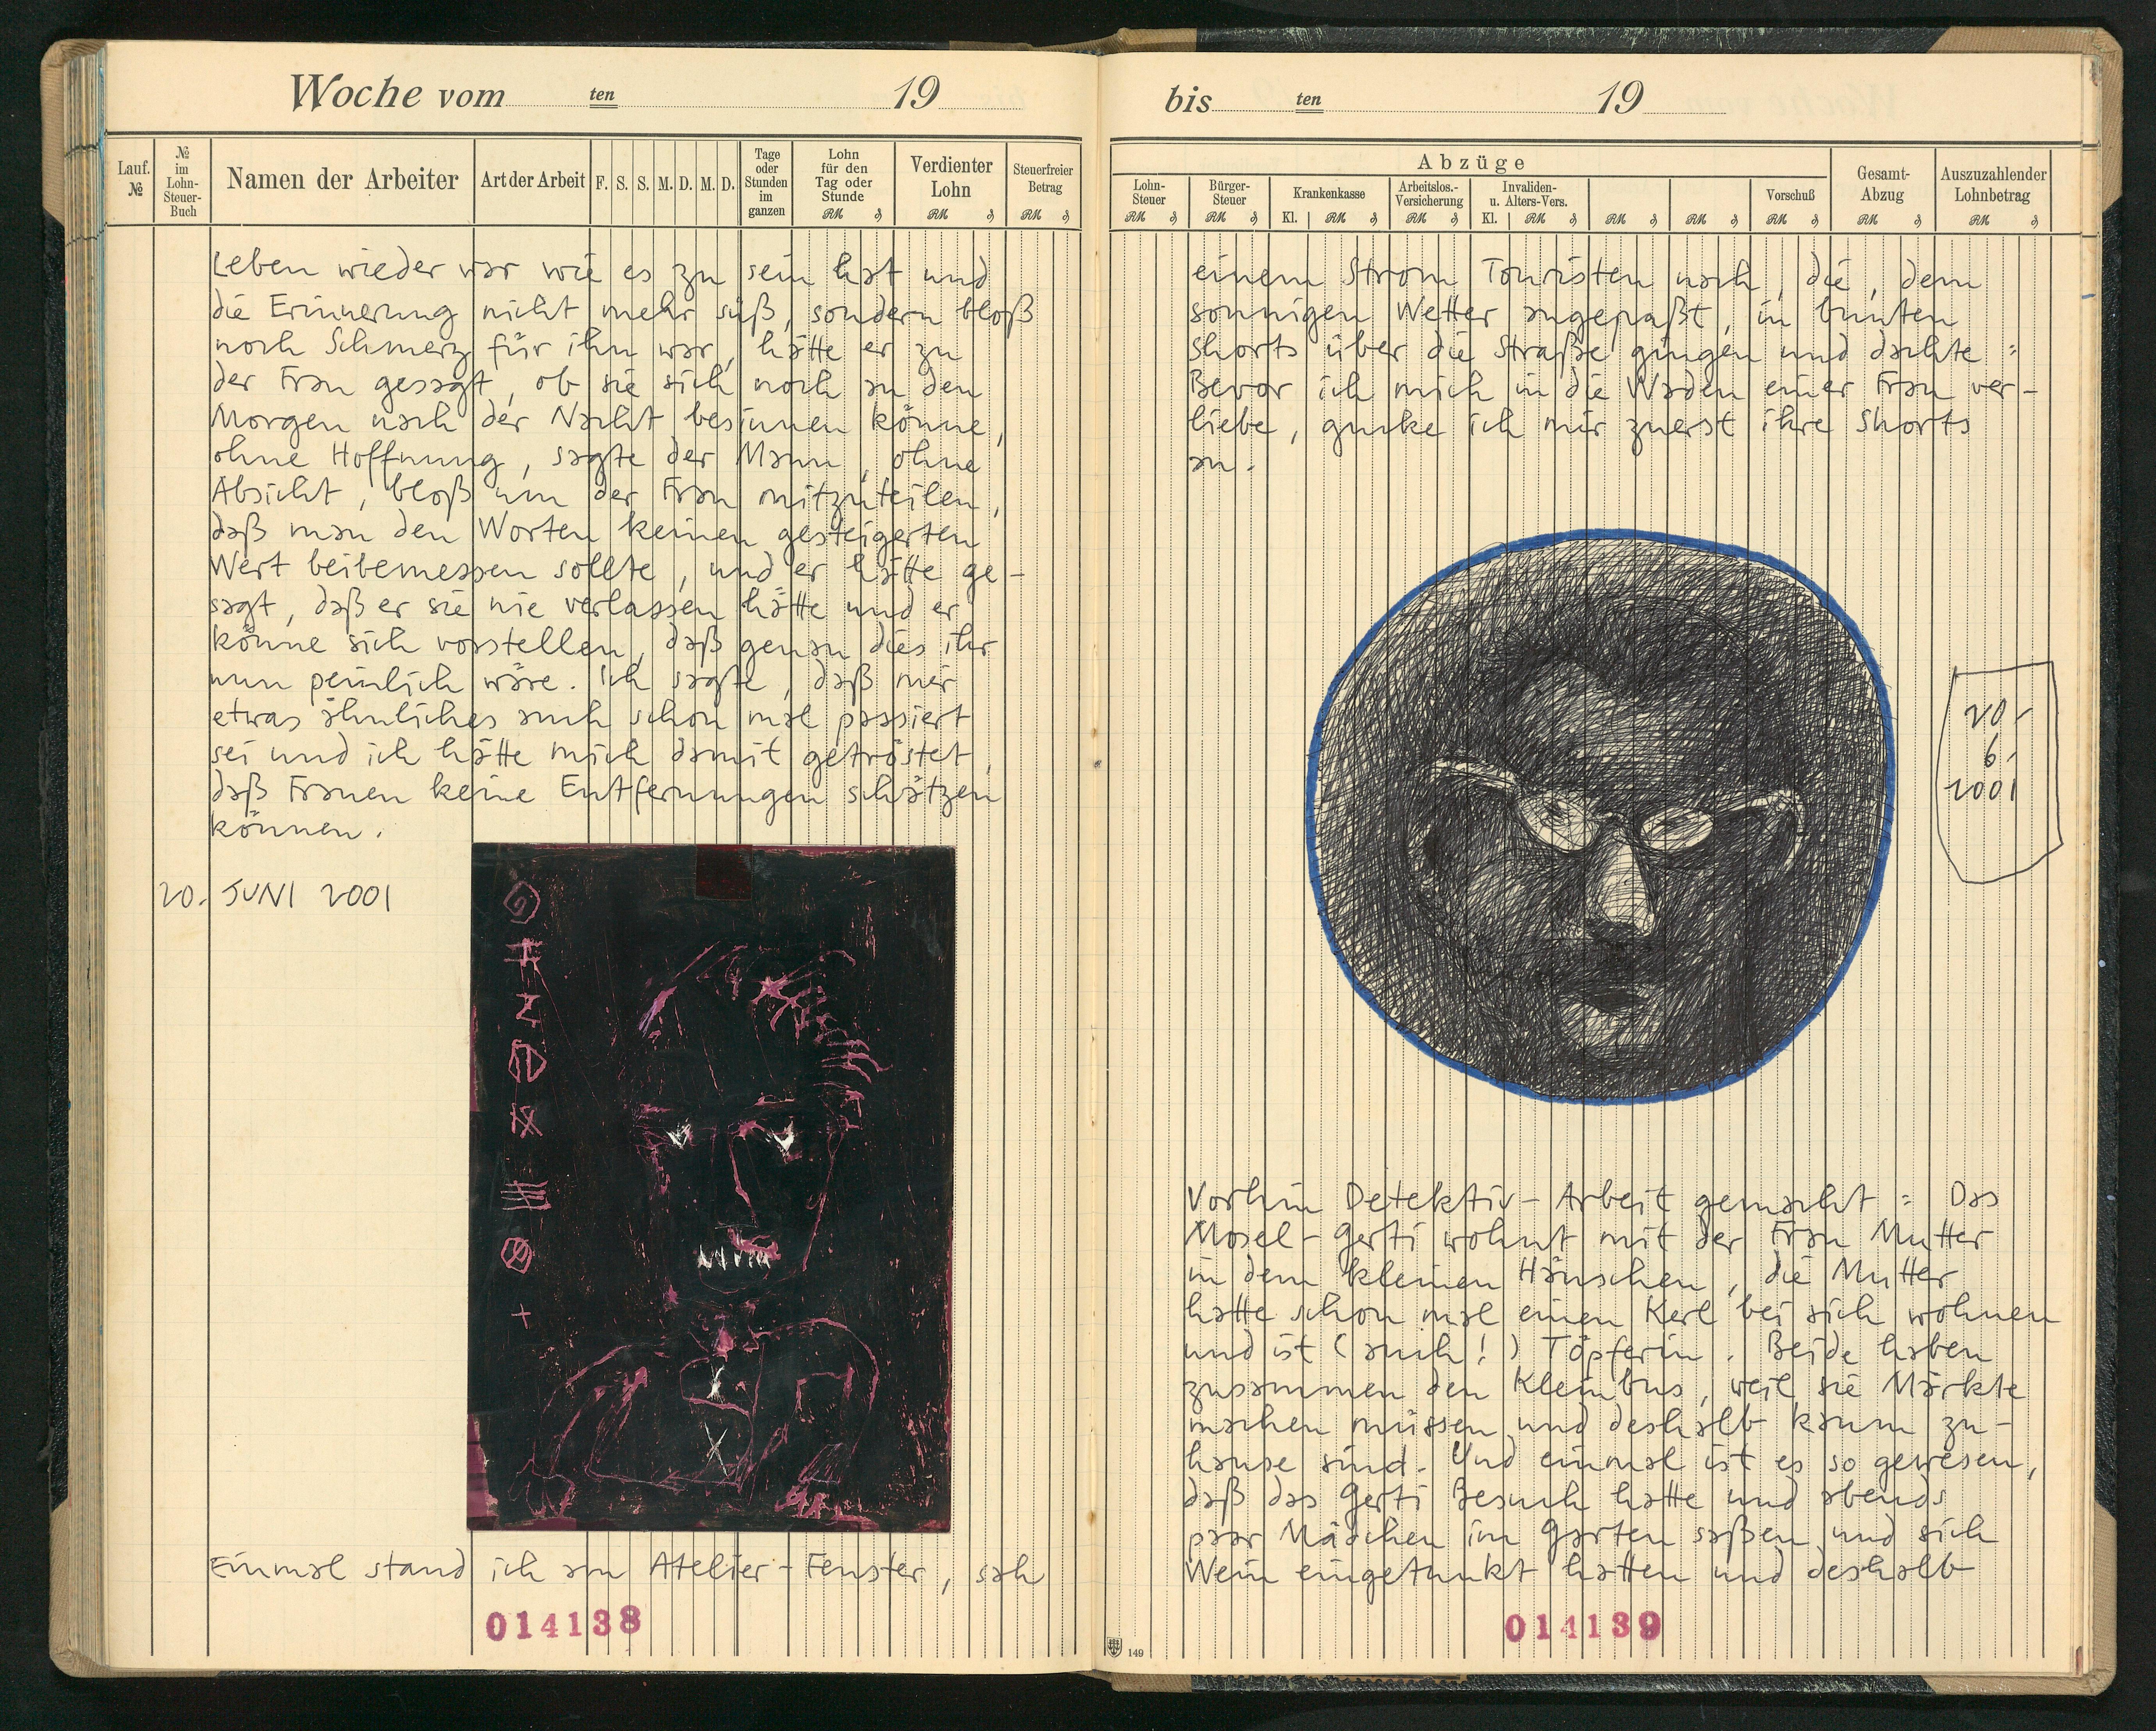 Woche vom ten 19
Lauf. №
№ im Lohn-Steuer-Buch
Namen der Arbeiter
Art der Arbeit
F. S. S. M. D. M. D.
Tage oder Stunden im ganzen
Lohn für den Tag oder Stunde
RM ₰
Verdienter Lohn
RM ₰
Steuerfreier Betrag
RM ₰
Leben wieder war wie es zu sein hat und
die Erinnerung nicht mehr süß, sondern bloß
noch Schmerz für ihn war, hätte er zu
der Frau gesagt, ob sie sich noch an den
Morgen nach der Nacht besinnen könne,
ohne Hoffnung, sagte der Mann, ohne
Absicht, bloß um der Frau mitzuteilen,
daß man den Worten keinen gesteigerten
Wert beibemessen sollte, und er hätte ge-
sagt, daß er sie nie verlassen hätte und er
könne sich vorstellen, daß genau dies ihr
nun peinlich wäre. Ich sagte, daß mir
etwas ähnliches auch schon mal passiert
sei und ich hätte mich damit getröstet,
daß Frauen keine Entfernungen schätzen
können.
20. JUNI 2001
Einmal stand ich am Atelier-Fenster, sah
014138
bis ten 19
Abzüge
Lohn-Steuer
RM ₰
Bürger-Steuer
RM ₰
Krankenkasse
Kl. RM ₰
Arbeitslos.-Versicherung
RM ₰
Invaliden- u. Alters-Vers.
Kl. RM ₰
RM ₰
RM ₰
Vorschuß
RM ₰
Gesamt-Abzug
RM ₰
Auszuzahlender Lohnbetrag
RM ₰
einem Strom Touristen nach, die, dem
sonnigen Wetter angepaßt, in bunten
Shorts über die Straße gingen und dachte:
Bevor ich mich in die Waden einer Frau ver-
liebe, gucke ich mir zuerst ihre Shorts
an.
20.
6.
2001
Vorhin Detektiv-Arbeit gemacht: Das
Mosel-Gerti wohnt mit der Frau Mutter
in dem kleinen Häuschen, die Mutter
hatte schon mal einen Kerl bei sich wohnen
und ist (auch!) Töpferin. Beide haben
zusammen den Kleinbus, weil sie Märkte
machen müssen und deshalb kaum zu-
hause sind. Und einmal ist es so gewesen,
daß das Gerti Besuch hatte und abends
paar Mädchen im Garten saßen und sich
Wein eingetunkt hatten und deshalb
014139
149